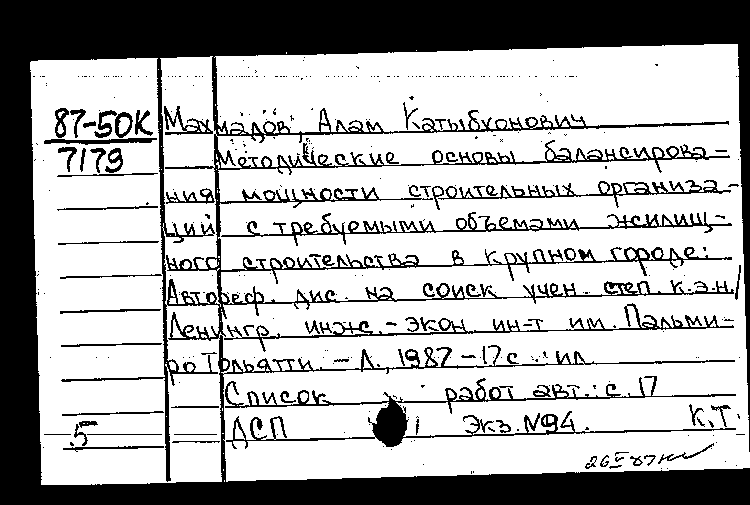 87-50К Махмадов, Алам Катыбхонович
7179 Методические основы балансирова-
ния мощности строительных организа-
ций с требуемыми объемами жилищ-
ного строительства в крупном городе:
Автореф. дис. на соиск учен. степ. к.э.н./
Ленингр. инж.-экон ин-т им. Пальми-
ро Тольятти. - Л., 1987 - 17 с. : ил.
Список работ авт.: с. 17
5 ДСП Экз. №94. К.Т.